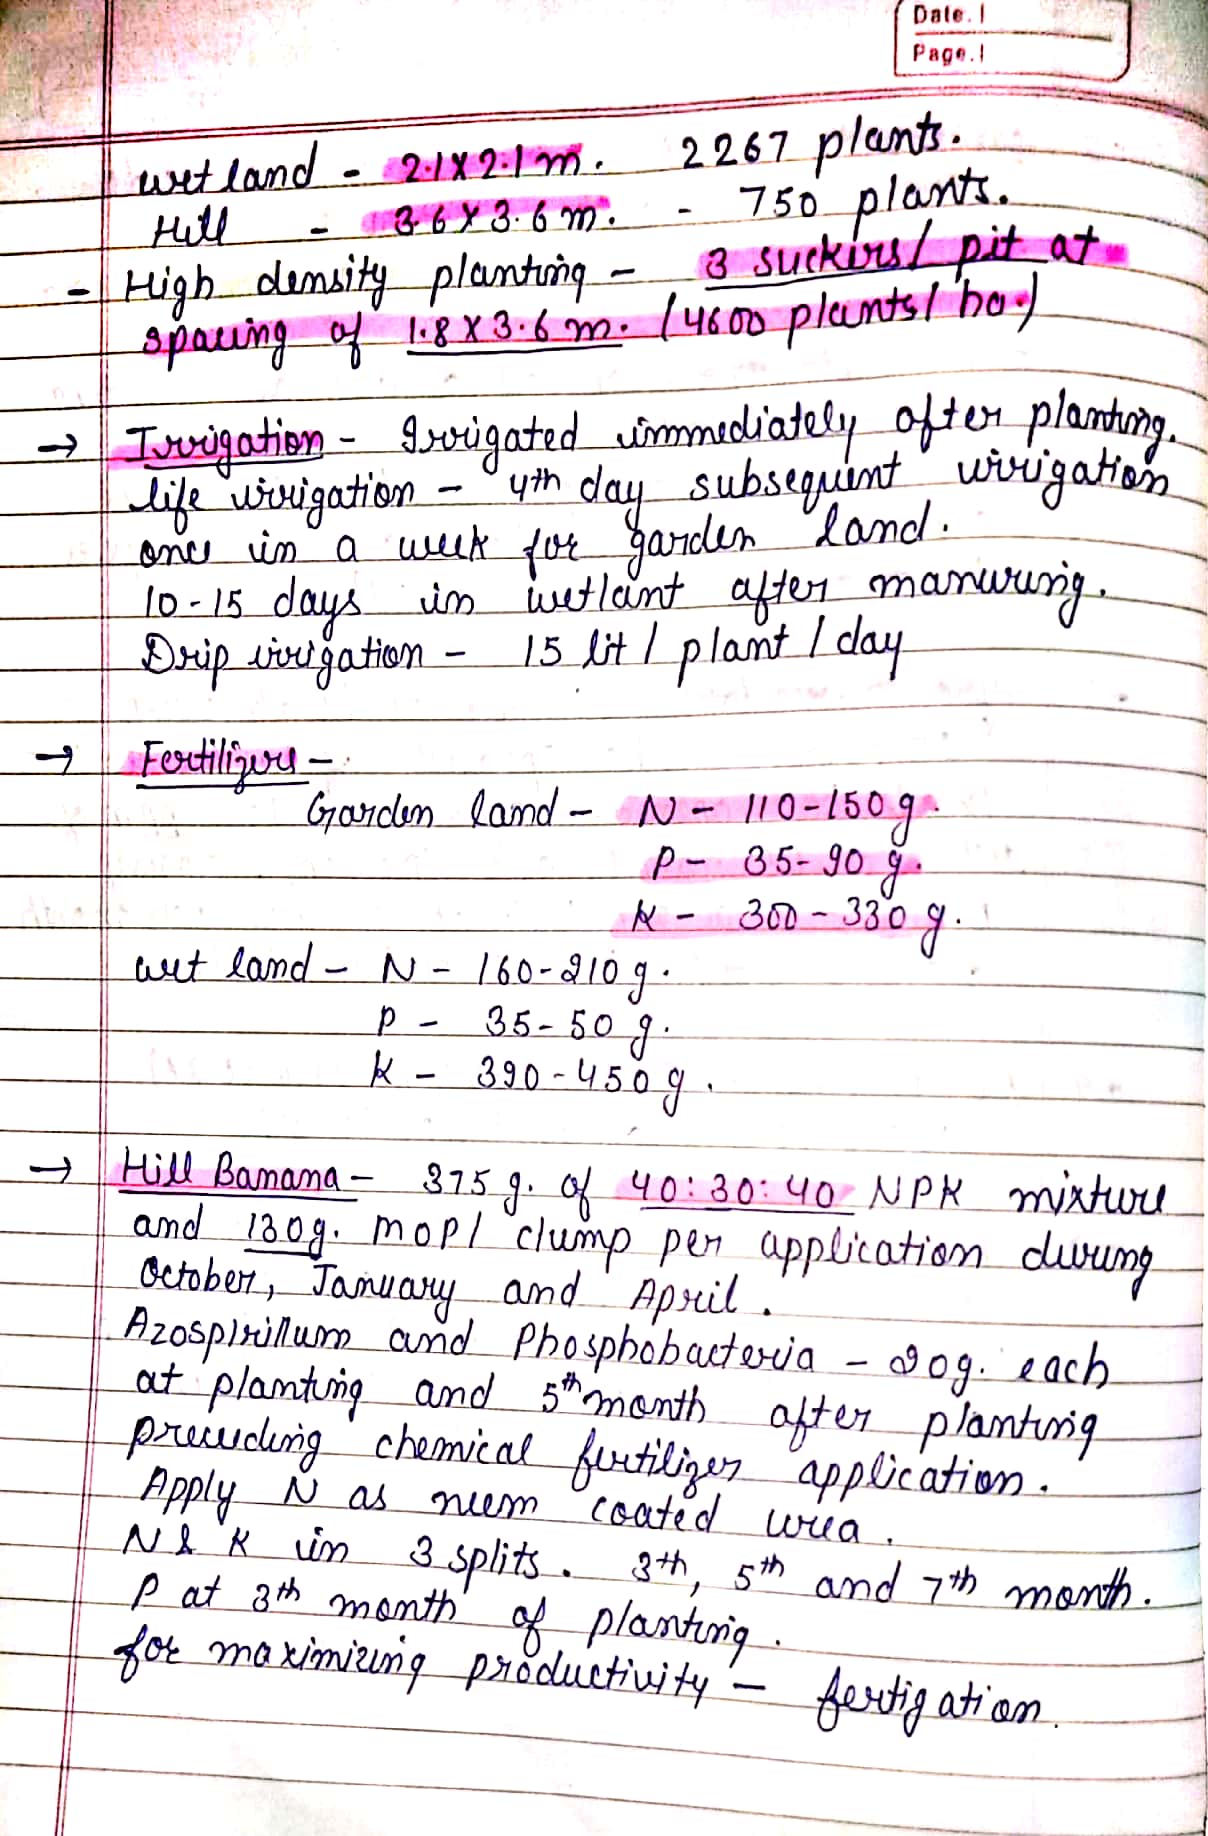 Date.
Page.
wet land - 2.1 X 2.1 m. 2267 plants.
Hill - 3.6 X 3.6 m. - 750 plants.
- High density planting - 3 suckers/ pit at
spacing of 1.8 X 3.6 m. (4600 plants/ ha.)
→ Irrigation - Irrigated immediately after planting.
life irrigation - 4th day subsequent irrigation
once in a week for garden land.
10-15 days in wetlant after manuring.
Drip irrigation - 15 lit / plant / day
→ Fertilizers -
Garden land - N - 110-150 g.
P - 35-90 g.
K - 300-330 g.
wet land - N - 160-210 g.
P - 35-50 g.
K - 390-450 g.
→ Hill Banana - 375 g. of 40:30:40 NPK mixture
and 130g. MOP/ clump per application during
October, January and April.
Azospirillum and Phosphobacteria - 20g. each
at planting and 5th month after planting
preceeding chemical fertilizer application.
Apply N as neem coated urea.
N & K in 3 splits. 3th, 5th and 7th month.
P at 3th month of planting.
for maximizing productivity - fertigation.